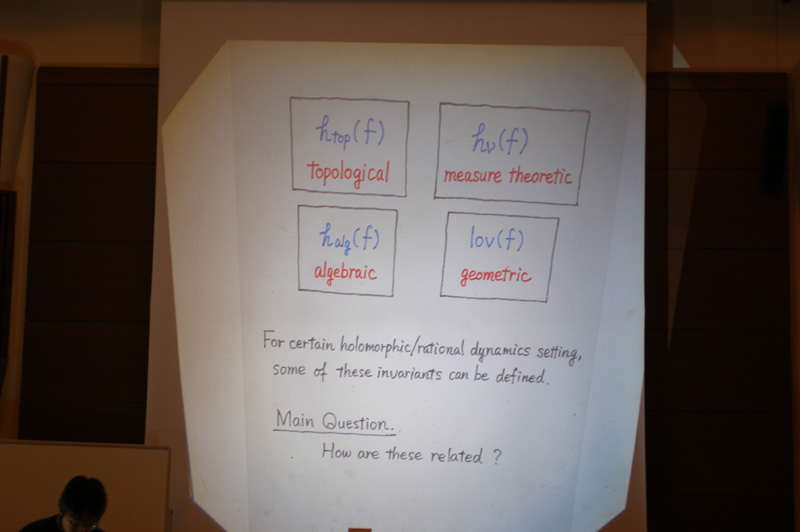 h_top(f)
topological
h_ν(f)
measure theoretic
h_alg(f)
algebraic
lov(f)
geometric
For certain holomorphic/rational dynamics setting,
some of these invariants can be defined.
Main Question.
How are these related ?